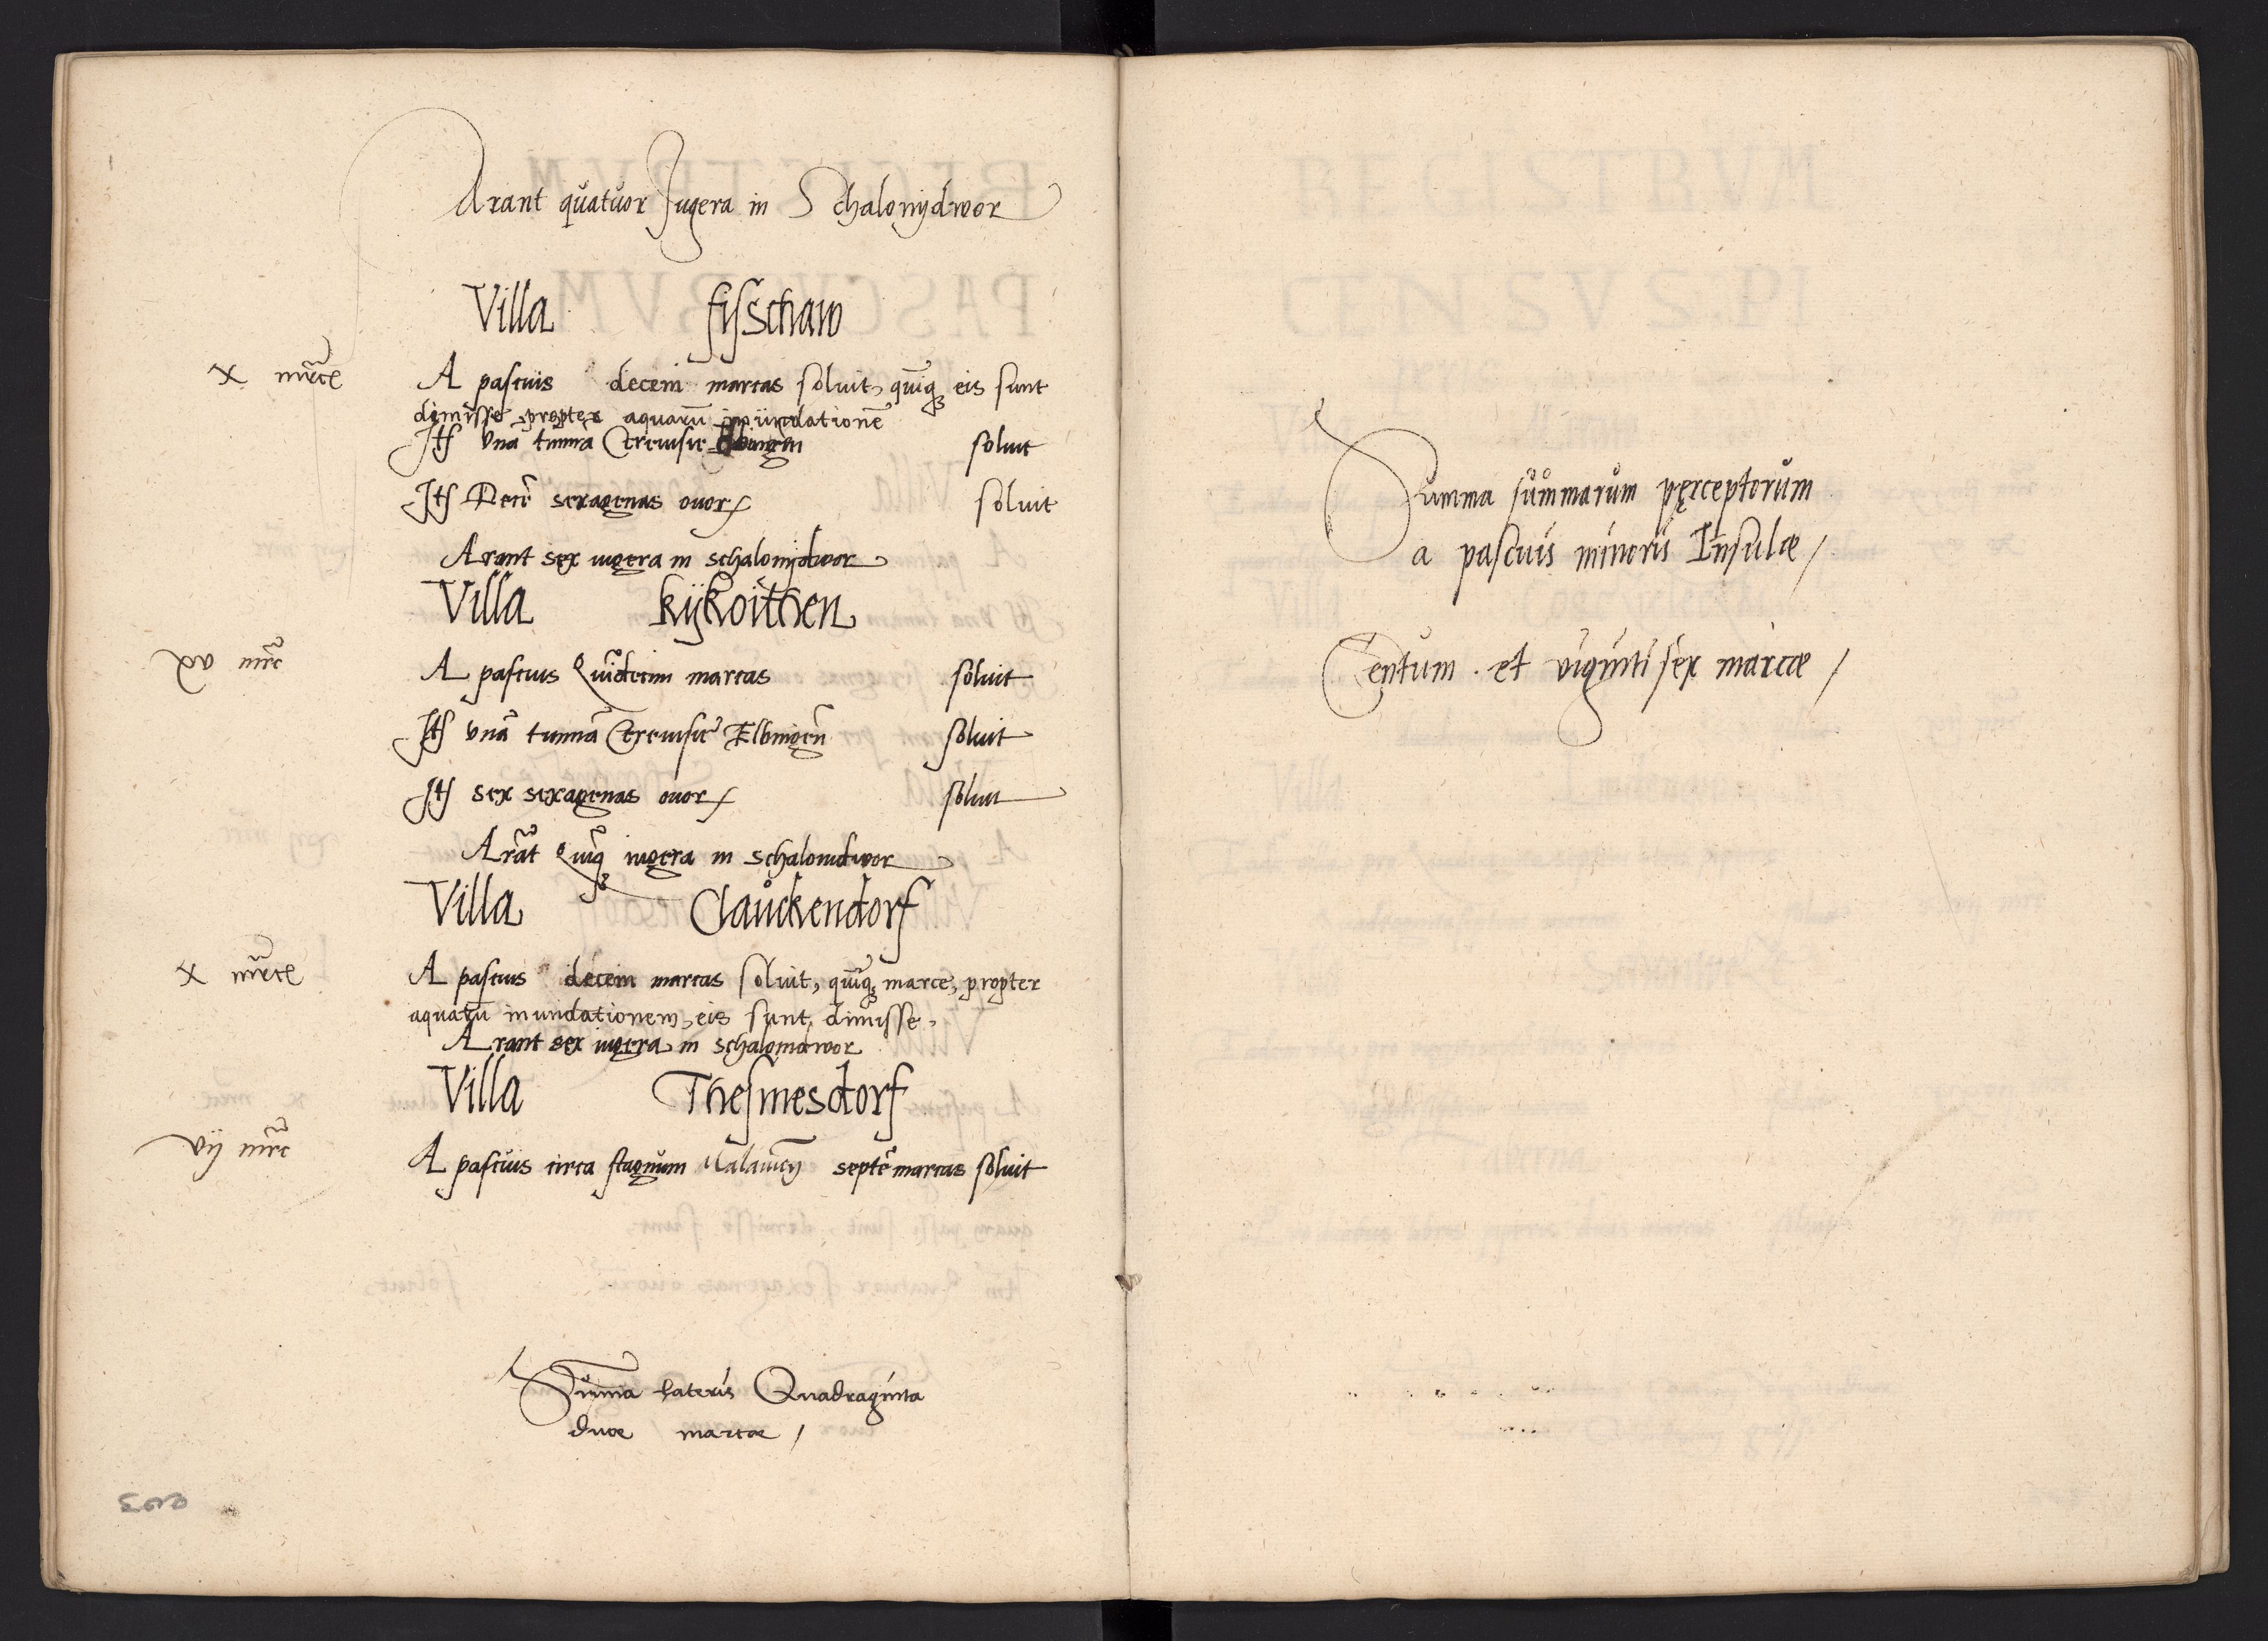 Arant quatuor Jugera in Schalonydwor
Villa fisschaw
X mrce A pascuis decem marcas soluit, quiq3 eis sunt
dimisse propter aquarū inūndationē
Itꝭ vna tunna Cereuisie Elbingen soluit
Itꝭ Decē sexagenas ouorꝝ soluit
Arant sex iugera in schalonijdwor
Villa kijkoithen
xv mrc A pascuis Quīdecim marcas soluit
Itꝭ vnā tunnā Cereuisie Elbingeñ soluit
Itꝭ sex sexagenas ouorꝝ soluit
Arāt Quīq3 iugera in schalonidwor
Villa Clauckendorf
X mrce A pascuis decem marcas soluit, quiq3 marce, propter
aquarū inundationem, eis sunt, dimisse,
Arant sex iugera in schalonidwor
Villa Thesmesdorf
vij mrc A pascuis circa stagnum septē marcas soluit
Sūmma Lateris Quadraginta
duae marcae /
Summa summarum perceptorum
a pascuis minoris Insulae /
Centum et viginti sex marcae /